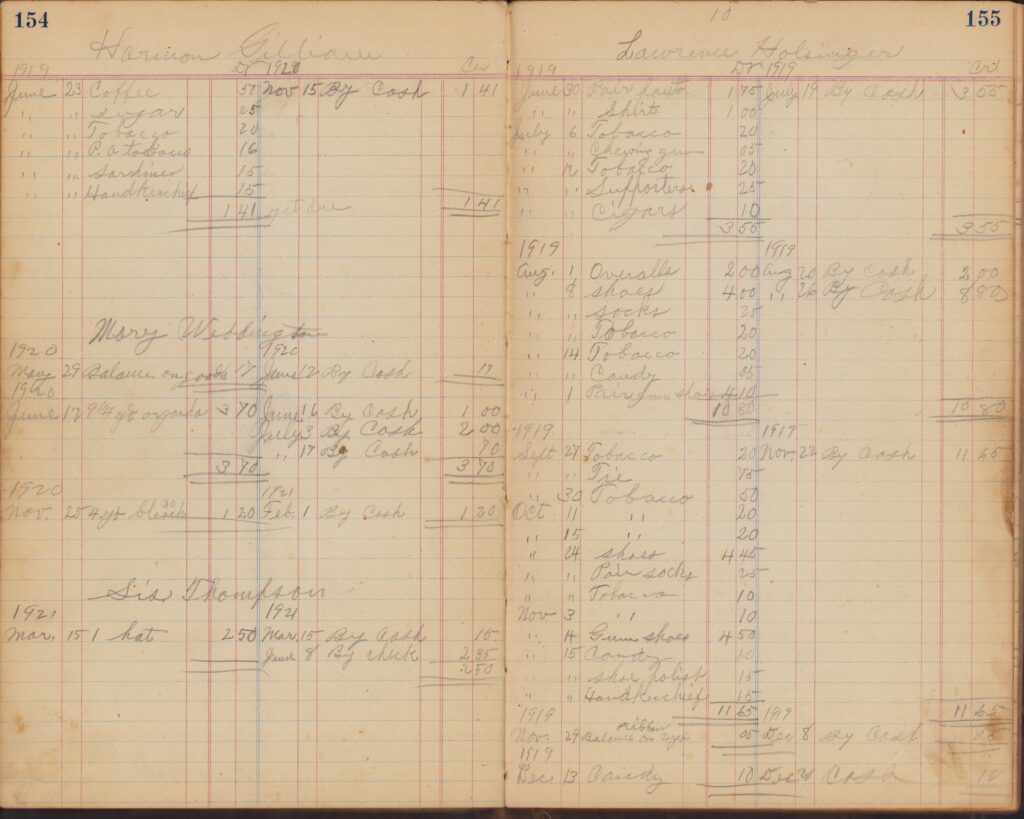 154
Harmon Gilliam
1919 Dr 1920 Cr
June 23 Coffee 50 Nov 15 By Cash 1 41
" " sugar 25
" " Tobacco 20
" " P. a tobacco 16
" " Sardines 15
" " Handkerchief 15
1 41 yet due 1 41
Mary Weddington
1920 1920
May 29 Balance on goods 17 June 12 By Cash 17
1920
June 12 yd organda 3 70 June 16 By Cash 1 00
July 3 By Cash 2 00
" 17 By Cash 70
3 70 3 70
1920 1921
Nov. 25 4 yd bleach 30 1 20 Feb. 1 By Cash 1 20
Sis. Thompson
1921 1921
Mar. 15 1 hat 2 50 Mar. 15 By Cash 15
June 8 By check 2 35
2 50
10
155
Lawrence Holsinger
1919 Dr 1919 Crd
June 30 Pair pants 1 75 July 19 By Cash 3 55
" " Shirt 1 00
July 6 Tobacco 20
" " Chewing gum 05
" 12 Tobacco 20
" " Supporters 25
" " Cigars 10
3 55 3 55
1919 1919
Aug. 1 Overalls 2 00 Aug 20 By Cash 2 00
" 8 shoes 4 00 " 26 By Cash 8 80
" " socks 25
" " Tobacco 20
" 14 Tobacco 20
" " Candy 05
" 1 Pair gum shoes 4 10
10 80 10 80
1919 1919
Sept 27 Tobacco 20 Nov. 22 By Cash 11 65
" " Tie 75
" 30 Tobacco 50
Oct 11 " 20
" 15 " 20
" 24 shoes 4 45
" " Pair socks 25
" " Tobacco 10
Nov 3 " 10
" 14 Gum shoes 4 50
" 15 Candy 10
" " shoe polish 15
" " Handkerchief 15
11 65 1919 11 65
1919
Nov. 29 Balance on ribbon 05 Dec 8 By Cash 05
1919
Dec 13 Candy 10 Dec Cash 10